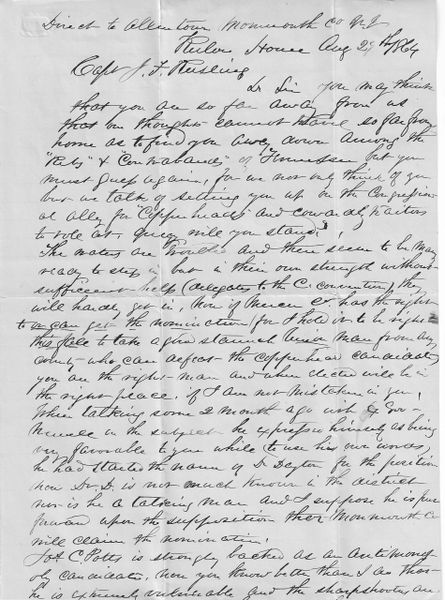 Direct to Allentown, Monmouth Co N J
House Aug 29th 1864
Capt J. F. Rusling
Dr Sir you may think
that you are so far away from us
that our thoughts cannot so far from
home as to find you away down among the
"Rebs" & "Contrabands" of Tennessee but you
must guess again, for we not only think of you
but we talk of setting you up on the Congression
al alley for Copperheads and Cowardly traitors
to role at, query will you stand?
The waters are troubled and there seem to be many
ready to step in but in their own strength without
sufficient help (delegates to the C. convention) they
will hardly get in, Now if Mercer Co. has the right
to or can get the nomination, for I hold it to be right
this fall to take a good staunch Union man from any
county who can defeat the copperhead candidate
you are the right man and when elected will be in
the right place, if I am not mistaken in you,
While talking some 2 month ago with Ex Gov
on the subject he expresse himself as being
very favorable to you while to use his own words
he had started the name of Dr Dayton for the position
now Dr D. is not much known in the district
nor is he a talking man and I suppose he is put
forward upon the supposition that Monmouth Co
will claim the nomination.
Jos. C. Potts is strongly backed as an Antimonop
oly candidate, now you know better than I do that
he is extremely vulnerable and the sharpshooters are